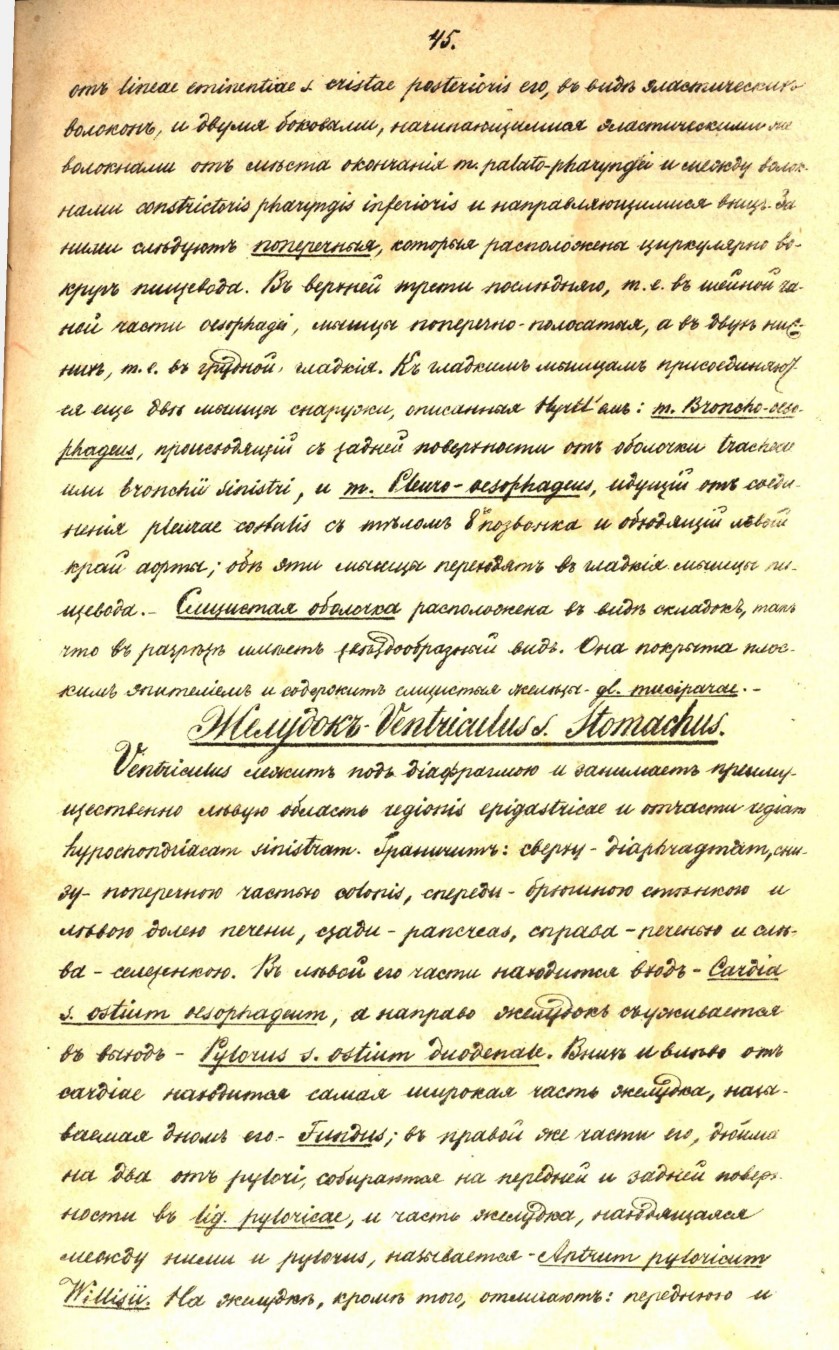 45.
отъ lineae eminentiae s. cristae posterioris его, въ видѣ эластическихъ
волоконъ, и двумя боковыми, начинающимися эластическими же
волокнами отъ мѣста окончанія m. palato-pharyngei и между волок-
нами constrictoris pharyngis inferioris и направляющимися внизъ. За
ними слѣдуютъ поперечныя, которыя расположены циркулярно во-
кругъ пищевода. Въ верхней трети послѣдняго, т. е. въ шейной
ной части oesophagi, мышцы поперечно-полосатыя, а въ двухъ ниж-
нихъ, т. е. въ грудной, гладкія. Къ гладкимъ мышцамъ присоединяют-
ся еще двѣ мышцы снаружи, описанныя Hyrtl'емъ: m. Broncho-oeso-
phageus, происходящій съ задней поверхности отъ оболочки tracheae
или bronchii sinistri, и m. Pleuro-oesophageus, идущій отъ соеди-
ненія pleurae costalis съ тѣломъ 8го позвонка и обходящій лѣвой
край аорты; обѣ эти мышцы переходятъ въ гладкія мышцы пи-
щевода. — Слизистая оболочка расположена въ видѣ складокъ, такъ
что въ разрѣзѣ имѣетъ звѣздообразный видъ. Она покрыта плос-
кимъ эпителіемъ и содержитъ слизистыя железы - gl. muciparae. —
Желудокъ - Ventriculus s. Stomachus.
Ventriculus лежитъ подъ діафрагмою и занимаетъ преиму-
щественно лѣвую область regionis epigastricae и отчасти regiam
hypochondriacam sinistram. Граничитъ: сверху - diaphragmam, сни-
зу - поперечною частью colonis, спереди - брюшною стѣнкою и
лѣвою долею печени, сзади - pancreas, справа - печенью и слѣ-
ва - селезенкою. Въ лѣвой его части находится входъ - Cardia
s. ostium oesophageum, а направо желудокъ съуживается
въ выходъ - Pylorus s. ostium duodenale. Внизъ и влѣво отъ
cardiae находится самая широкая часть желудка, назы-
ваемая дномъ его - Fundus; въ правой же части его, дюйма
на два отъ pylori, собираются на передней и задней поверх-
ности въ lig. pyloricae, и часть желудка, находящаяся
между ними и pylorus, называется - Antrum pyloricum
Willisii. На желудкѣ, кромѣ того, отличаютъ: переднюю и